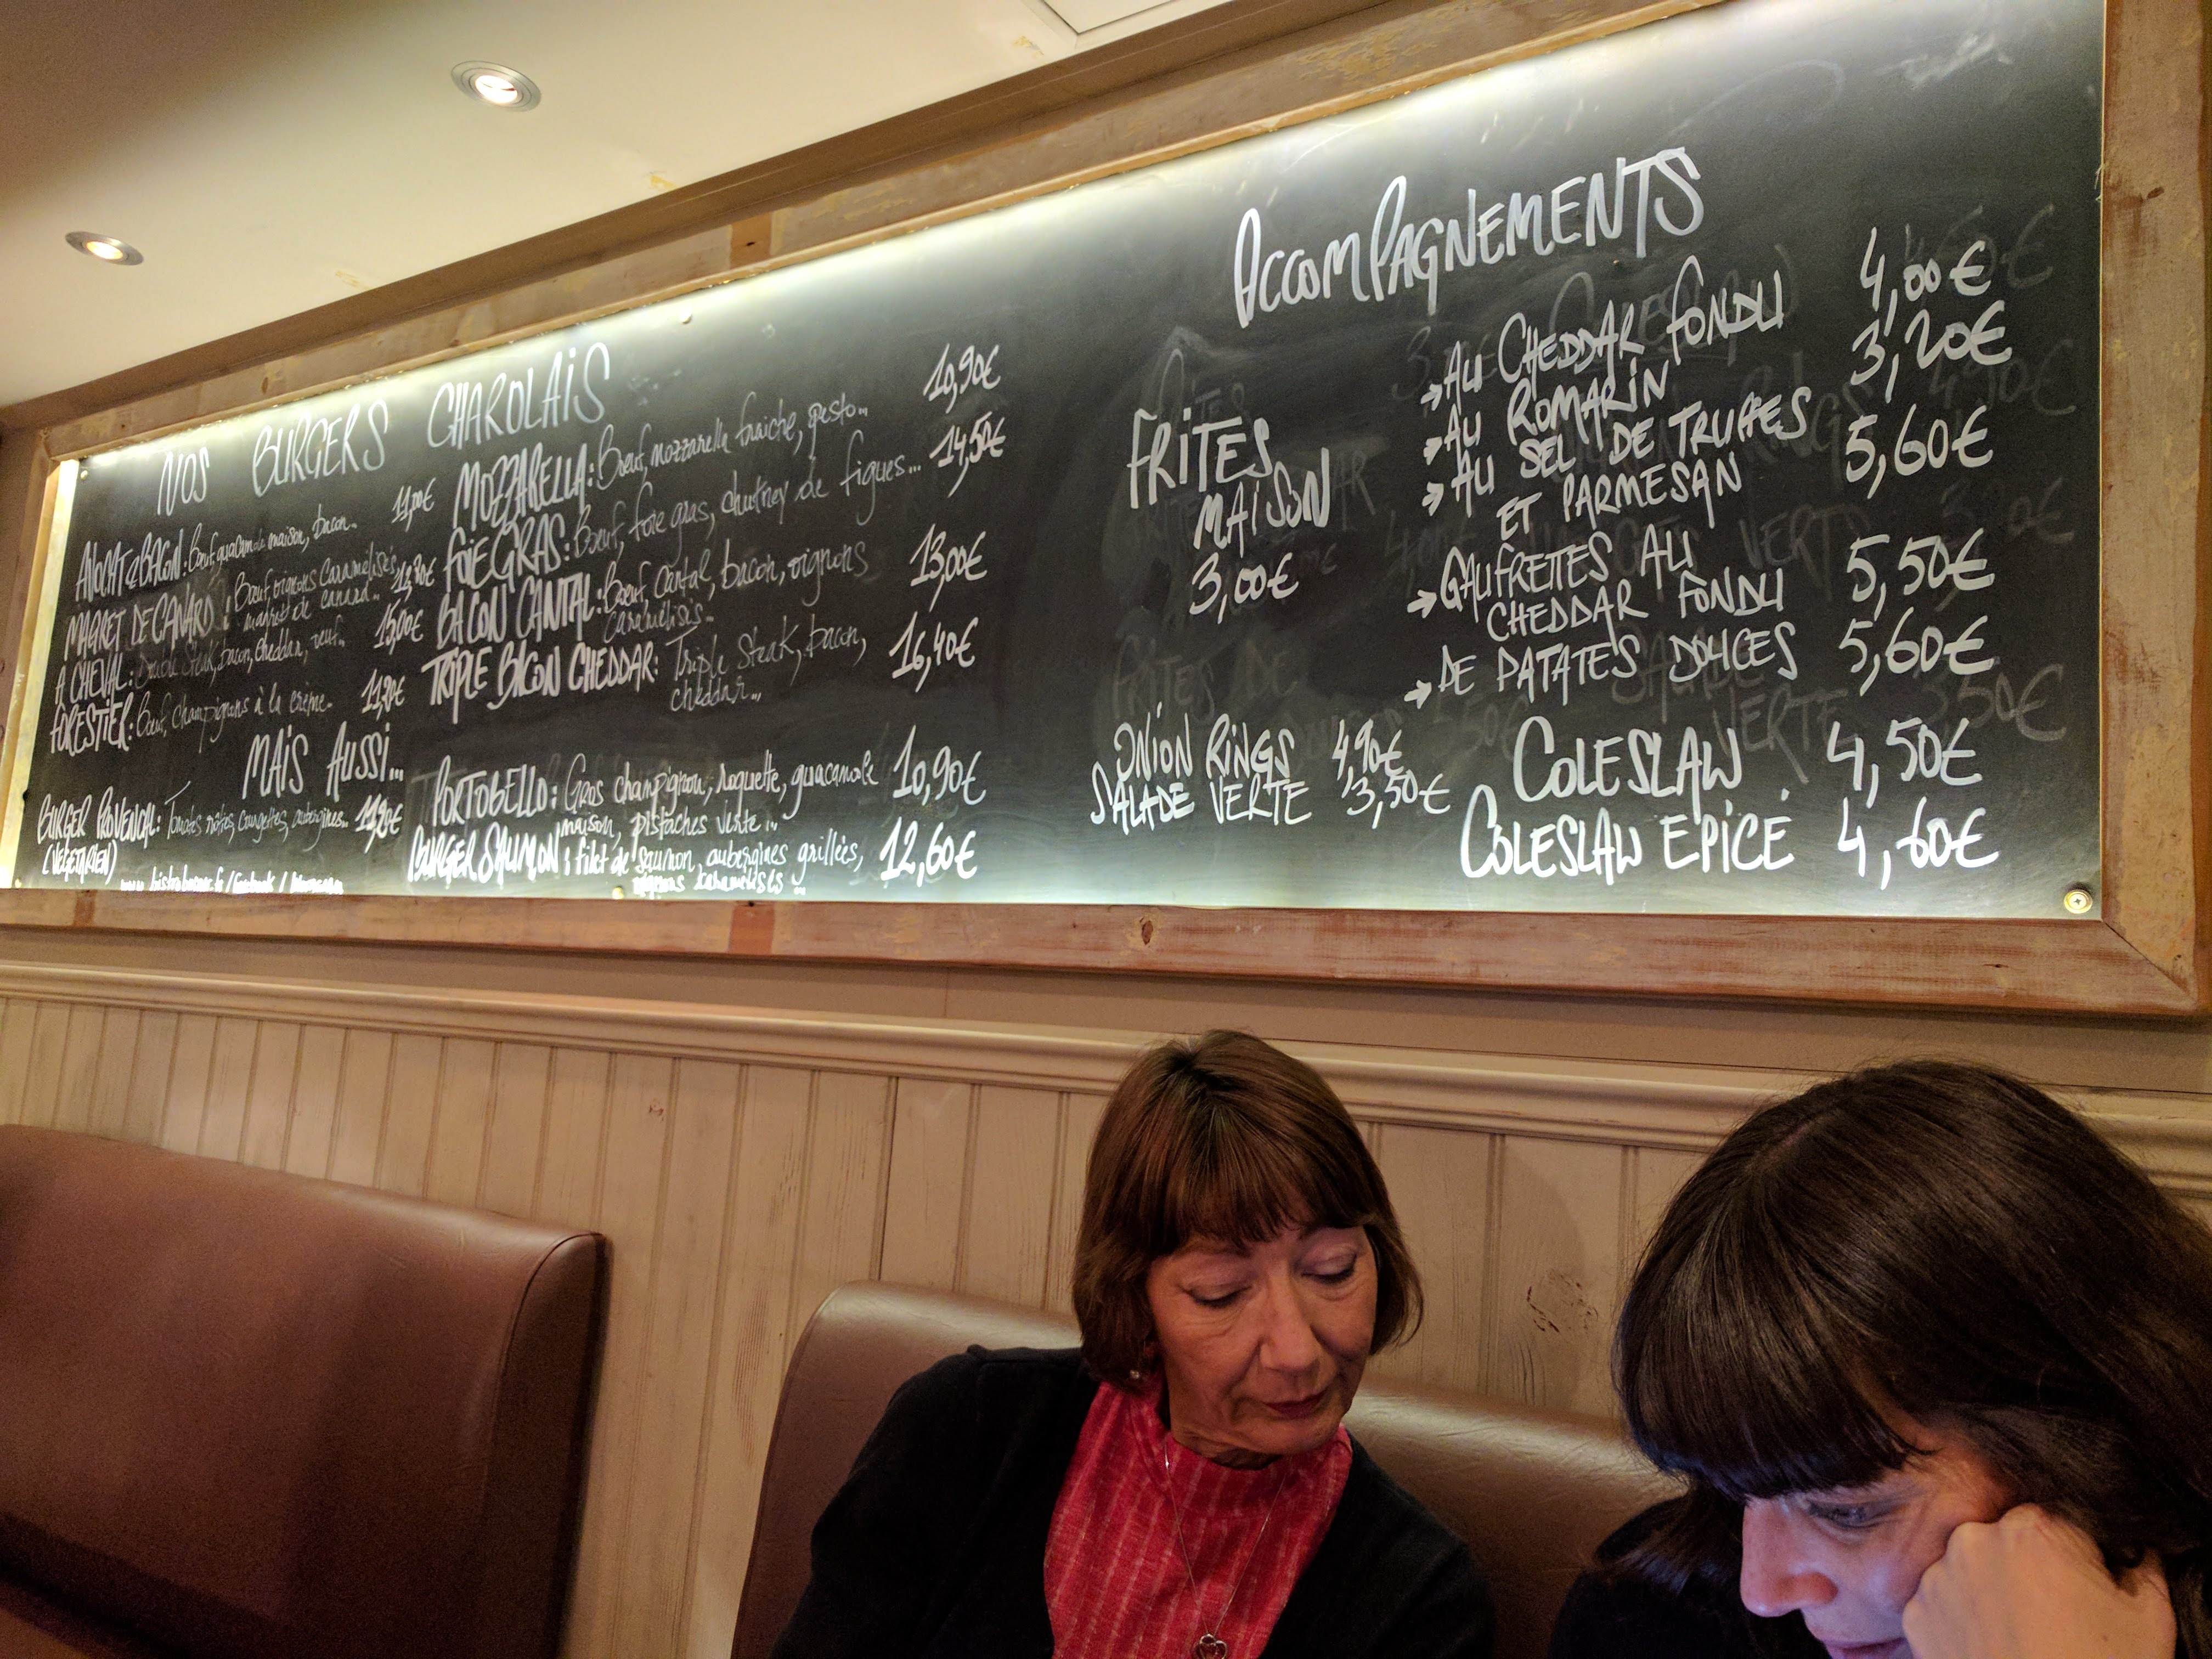 NOS BURGERS CHAROLAIS
AVOCAT & BACON: Boeuf, guacamole maison, bacon..
MAGRET DE CANARD: Boeuf, oignons caramélisés,
magret de canard..
A CHEVAL: Double Steak, bacon, cheddar, oeuf.. 15,00€
FORESTIER: Boeuf, champignons à la crème..
MOZZARELLA: Boeuf, mozzarella fraiche, pesto... 10,90€
FOIE GRAS: Boeuf, foie gras, chutney de figues... 14,50€
BACON CANTAL: Boeuf, Cantal, bacon, oignons 13,00€
caramélisés..
TRIPLE BACON CHEDDAR: Triple Steak, bacon, 16,40€
cheddar..
MAIS AUSSI...
BURGER PROVENCAL: Tomates rôties, courgettes, aubergines..
(VEGETARIEN)
PORTOBELLO: Gros champignon, roquette, guacamole 10,90€
maison, pistaches verte..
BURGER SAUMON: filet de saumon, aubergines grillées, 12,60€
oignons caramélisés ..
ACCOMPAGNEMENTS
FRITES
MAISON
3,00€
→ AU CHEDDAR FONDU 4,00€
→ AU ROMARIN 3,20€
→ AU SEL DE TRUFFES
ET PARMESAN 5,60€
→ GAUFRETTES AU
CHEDDAR FONDU 5,50€
→ DE PATATES DOUCES 5,60€
ONION RINGS 4,90€
SALADE VERTE 3,50€
COLESLAW 4,50€
COLESLAW EPICÉ 4,60€